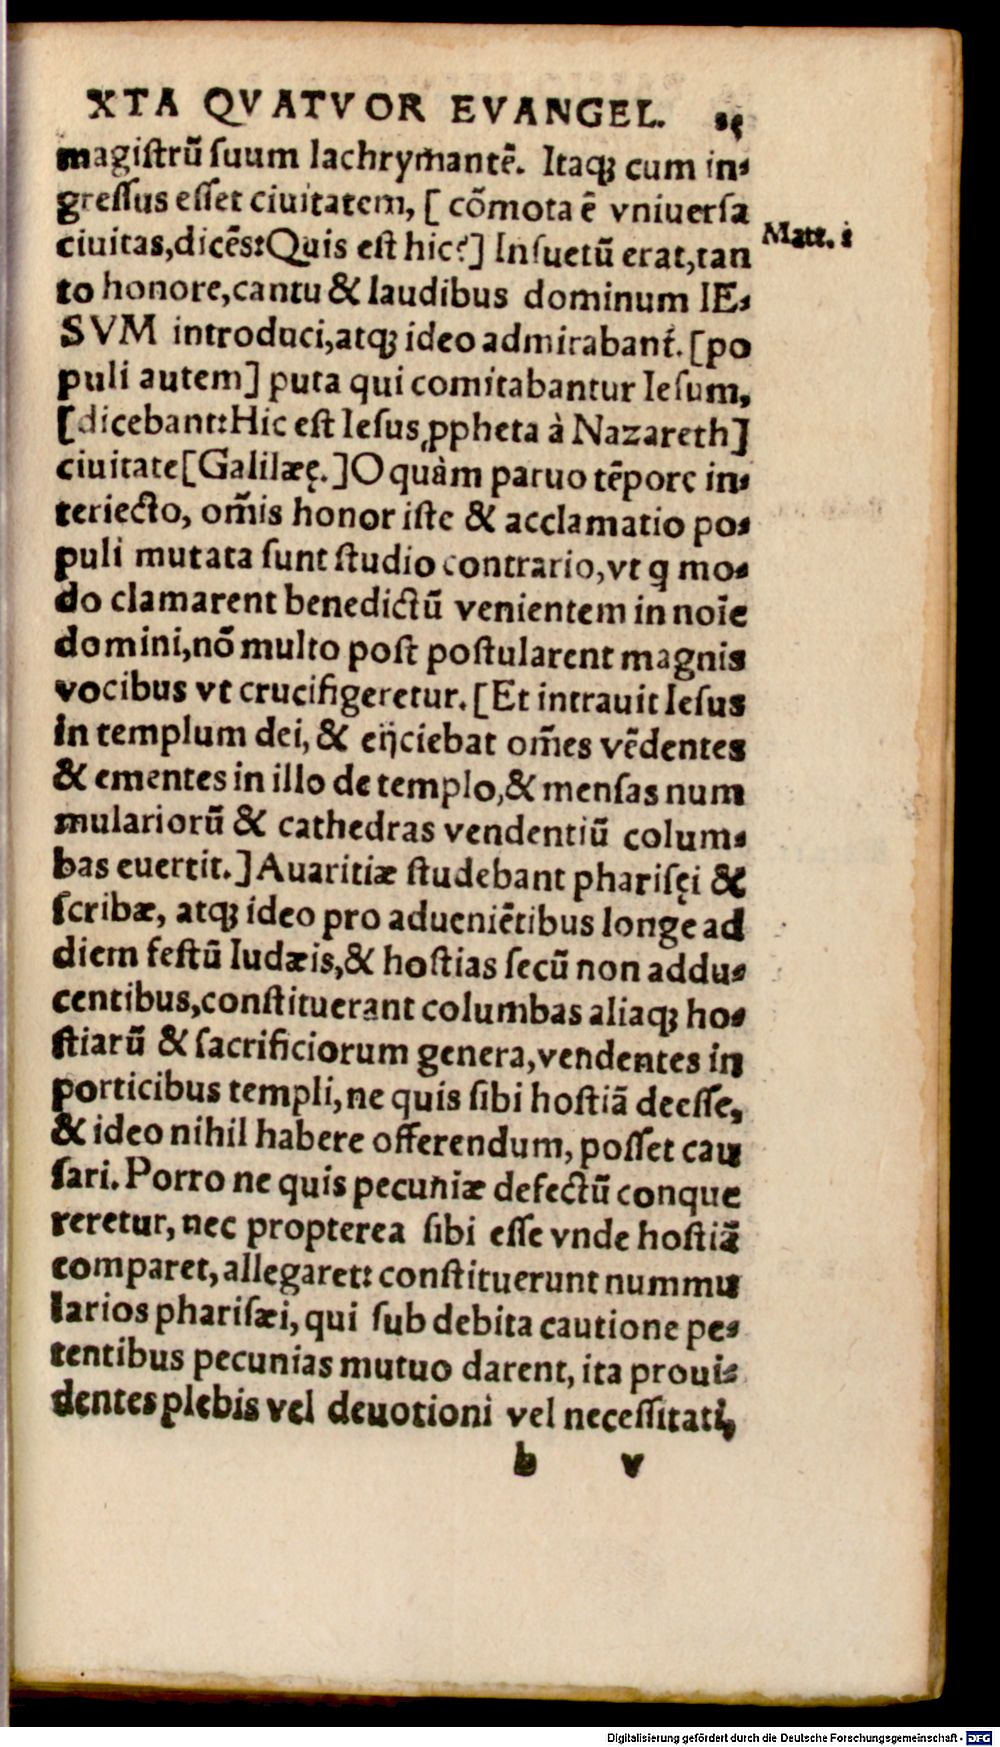 XTA QVATVOR EVANGEL.
magiſtrũ ſuum lachrymantẽ. Itaqꝫ cum in-
greſſus eſſet ciuitatem, [ cõmota ẽ vniuerſa
ciuitas, dicẽs: Quis eſt hic?] Inſuetũ erat, tan
Matt. i
to honore, cantu & laudibus dominum IE-
SVM introduci, atqꝫ ideo admirabant̃. [po
puli autem] puta qui comitabantur Ieſum,
[dicebant: Hic eſt Ieſus ꝓpheta à Nazareth]
ciuitate [Galilææ̨.] O quàm paruo tẽpore in-
teriecto, om̃is honor iſte & acclamatio po-
puli mutata ſunt ſtudio contrario, vt q̃ mo-
do clamarent benedictũ venientem in noĩe
domini, nõ multo poſt poſtularent magnis
vocibus vt crucifigeretur. [Et intrauit Ieſus
in templum dei, & eijciebat om̃es vẽdentes
& ementes in illo de templo, & menſas num
mulariorũ & cathedras vendentiũ colum-
bas euertit.] Auaritiæ ſtudebant phariſęi &
ſcribæ, atqꝫ ideo pro adueniẽtibus longe ad
diem feſtũ Iudæis, & hoſtias ſecũ non addu-
centibus, conſtituerant columbas aliaqꝫ ho-
ſtiarũ & ſacrificiorum genera, vendentes in
porticibus templi, ne quis ſibi hoſtiã deeſſe,
& ideo nihil habere offerendum, poſſet cau
ſari. Porro ne quis pecuniæ defectũ conque
reretur, nec propterea ſibi eſſe vnde hoſtiã
comparet, allegaret: conſtituerunt nummu
larios phariſæi, qui ſub debita cautione pe-
tentibus pecunias mutuo darent, ita proui-
dentes plebis vel deuotioni vel neceſſitati,
b v
Digitalisierung gefördert durch die Deutsche Forschungsgemeinschaft - DFG